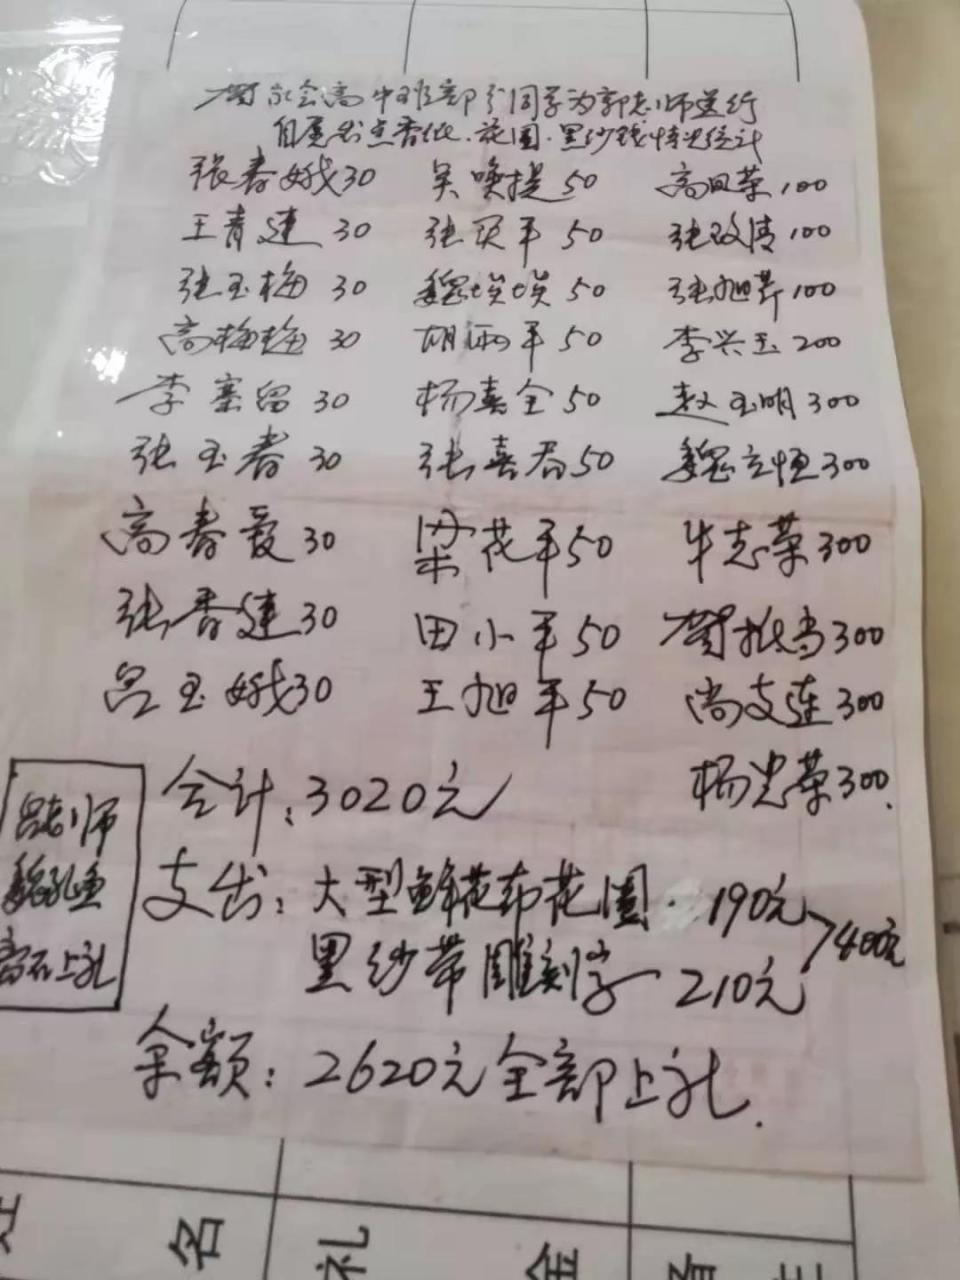 贺家会高中班部分同学为郭老师送行
自愿出点香纸、花圈、黑纱钱情况统计
张春娥30 吴唤提50 高凤荣100
王青建 30 张顶平 50 张改清100
张玉梅 30 魏埃埃 50 张旭芹100
高梅梅 30 胡两平 50 李兴玉 200
李塞留 30 杨喜全 50 赵玉明 300
张玉春 30 张喜春50 魏立恒300
高春爱 30 梁花平50 牛志荣300
张香建 30 田小平50 贺 300
吕玉娥30 王旭平50 尚支连300
杨光荣300.
合计:3020元
吕老师
支出:大型鲜花布花圈 190元
黑纱带雕刻字 210元
400元
上礼
余额:2620元全部上礼.
名 礼 金